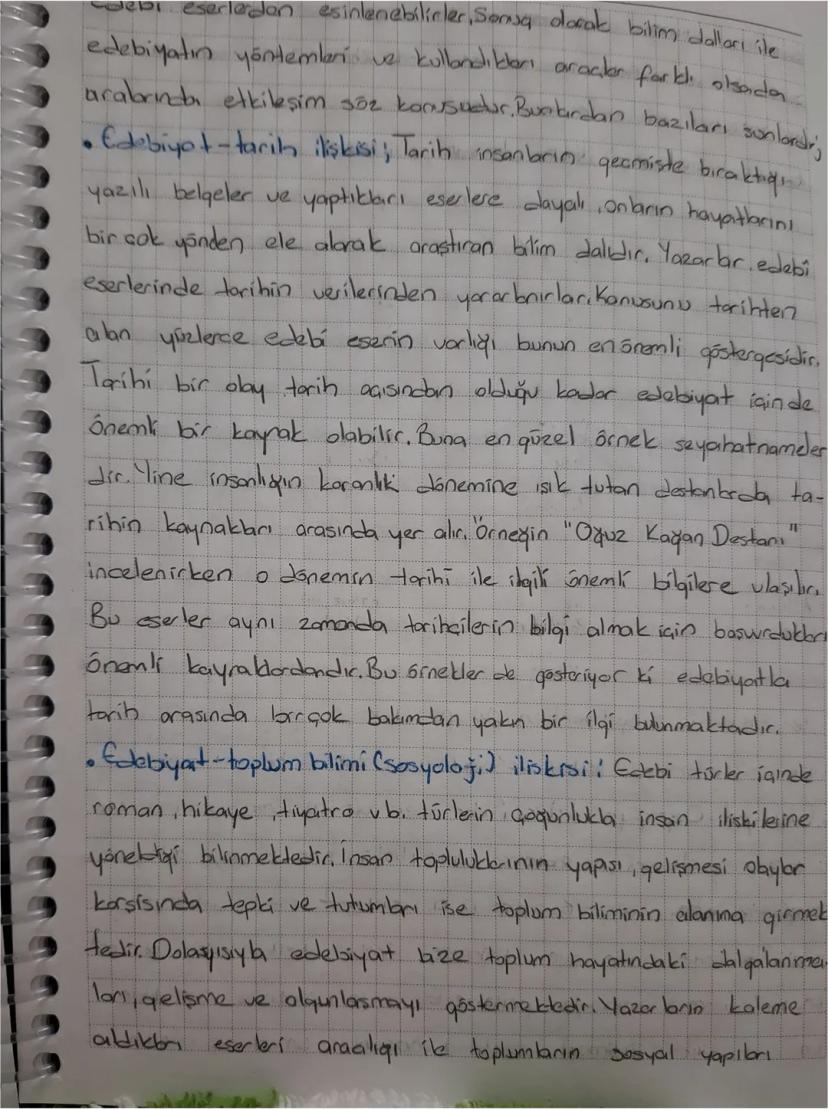 edebi eserlerden esinlenebilirler. Sonuç olarak bilim dalları ile
edebiyatın yöntemleri ve kullandıkları araçlar farklı olsada
aralarında etkileşim söz konusudur. Bunlardan bazıları şunlardır;
• Edebiyat-tarih ilişkisi; Tarih insanların geçmişte bıraktığı
yazılı belgeler ve yaptıkları eserlere dayalı, onların hayatlarını
bir çok yönden ele alarak araştıran bilim dalıdır. Yazarlar, edebi
eserlerinde tarihin verilerinden yararlanırlar. Konusunu tarihten
alan yüzlerce edebi eserin varlığı bunun en önemli göstergesidir.
Tarihi bir olay tarih açısından olduğu kadar edebiyat içinde
önemli bir kaynak olabilir. Buna en güzel örnek seyahatnameler
dir. Yine insanlığın karanlık dönemine ışık tutan destanlarda ta-
rihin kaynakları arasında yer alır. Örneğin "Oğuz Kağan Destanı"
incelenirken o dönemin tarihi ile ilgili önemli bilgilere ulaşılır.
Bu eserler aynı zamanda tarihçilerin bilgi almak için başvurdukları
önemli kaynaklardandır. Bu örnekler de gösteriyor ki edebiyatla
tarih arasında birçok bakımdan yakın bir ilgi bulunmaktadır.
• Edebiyat-toplum bilimi (sosyoloji) ilişkisi: Edebi türler içinde
roman, hikaye, tiyatro vb. türlerin çoğunlukla insan ilişkilerine
yöneldiği bilinmektedir. İnsan topluluklarının yapısı, gelişmesi olaylar
karşısında tepki ve tutumları ise toplum biliminin alanına girmek
tedir. Dolayısıyla edebiyat bize toplum hayatındaki dalgalanma
ları, gelişme ve olgunlaşmayı göstermektedir. Yazarların kaleme
aldıkları eserleri aracılığı ile toplumların sosyal yapıları